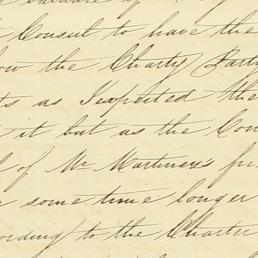 Consul to have the
the Charty Party
as I expected the
it but as the Con
of Mr Martiner's
some time longer
ording to the Charter